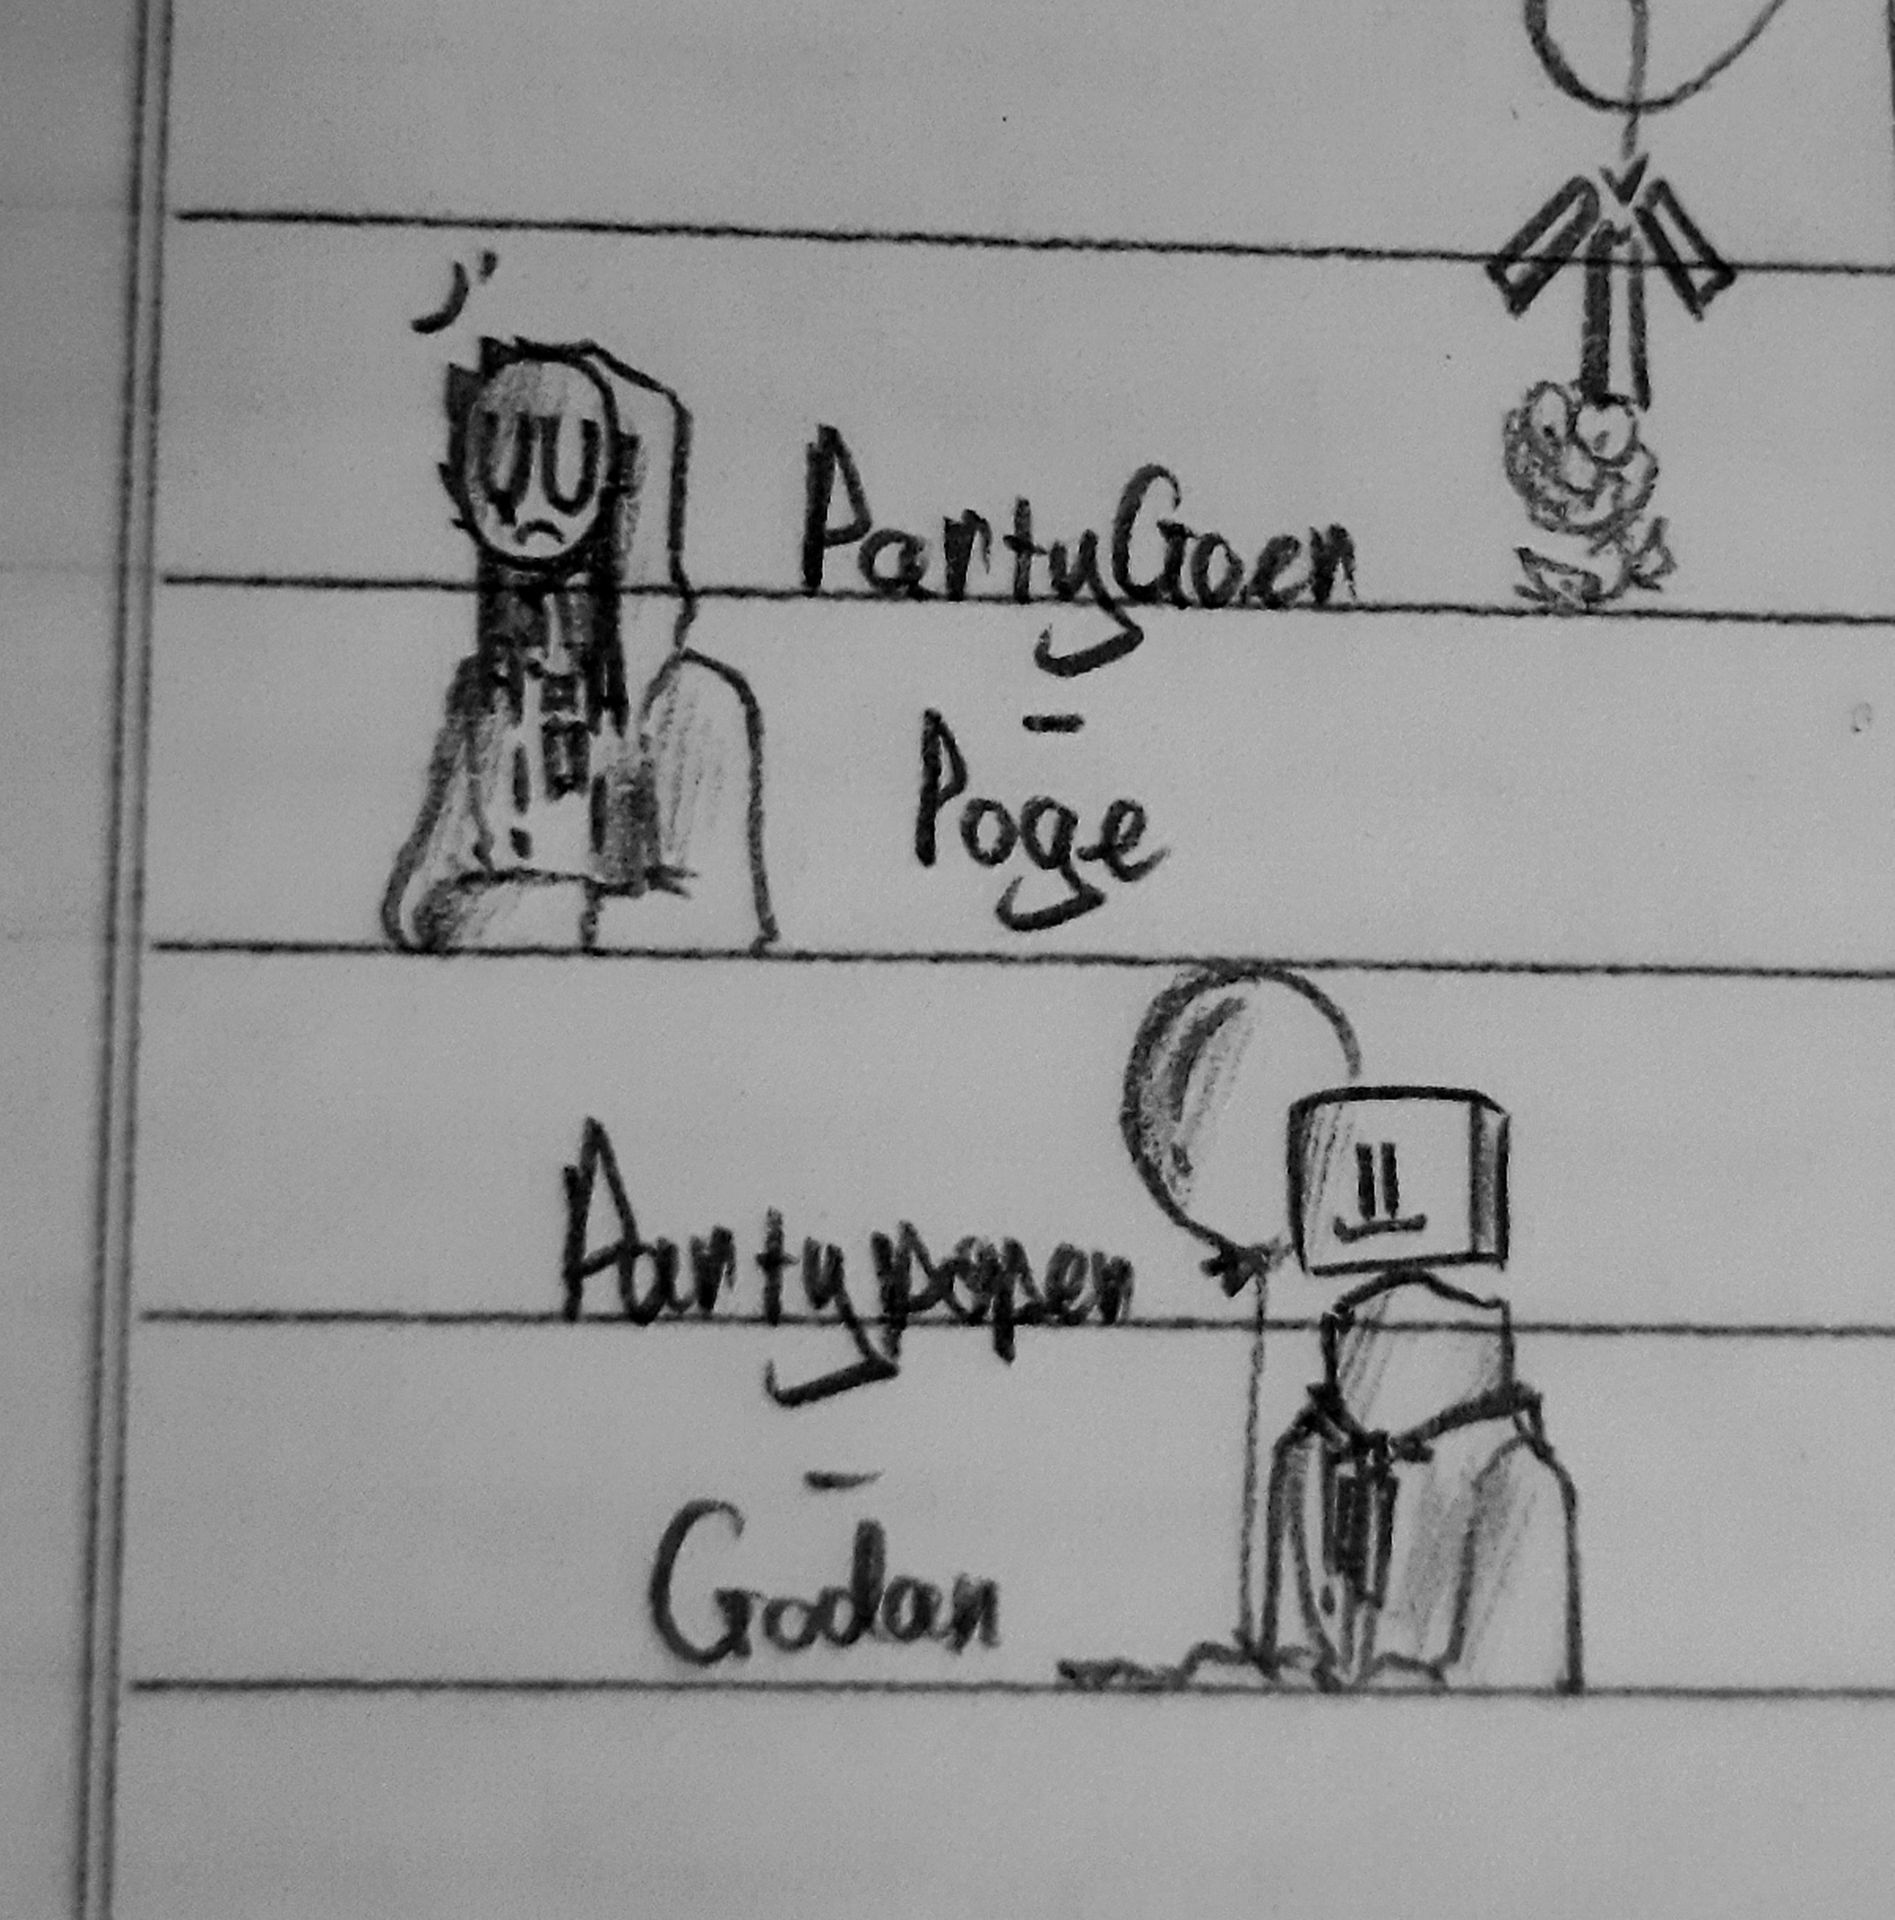 PartyGoer
-
Poge
Partypoper
-
Godan